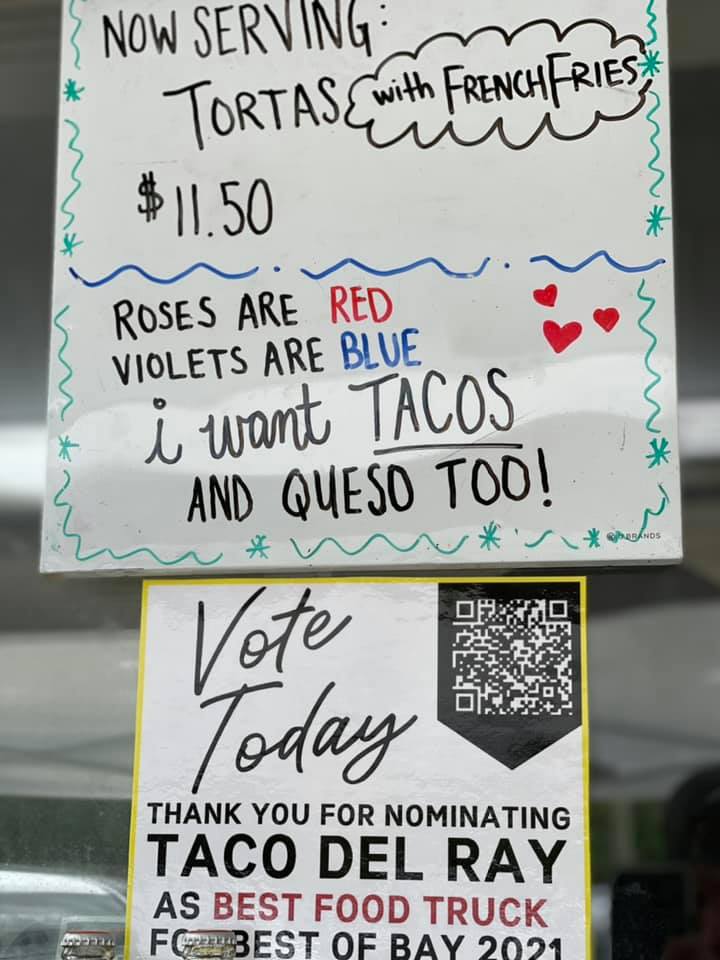 NOW SERVING:
TORTAS with FRENCH FRIES
$11.50
ROSES ARE RED
VIOLETS ARE BLUE
i want TACOS
AND QUESO TOO!
BRANDS
Vote
Today
THANK YOU FOR NOMINATING
TACO DEL RAY
AS BEST FOOD TRUCK
BEST OF BAY 2021